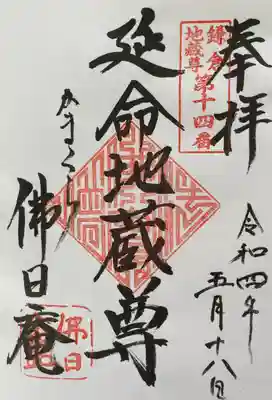 奉拝
鎌倉
地蔵尊
第十四番
令和四年
五月十八日
延命地蔵尊
かまくら
佛日庵
佛日